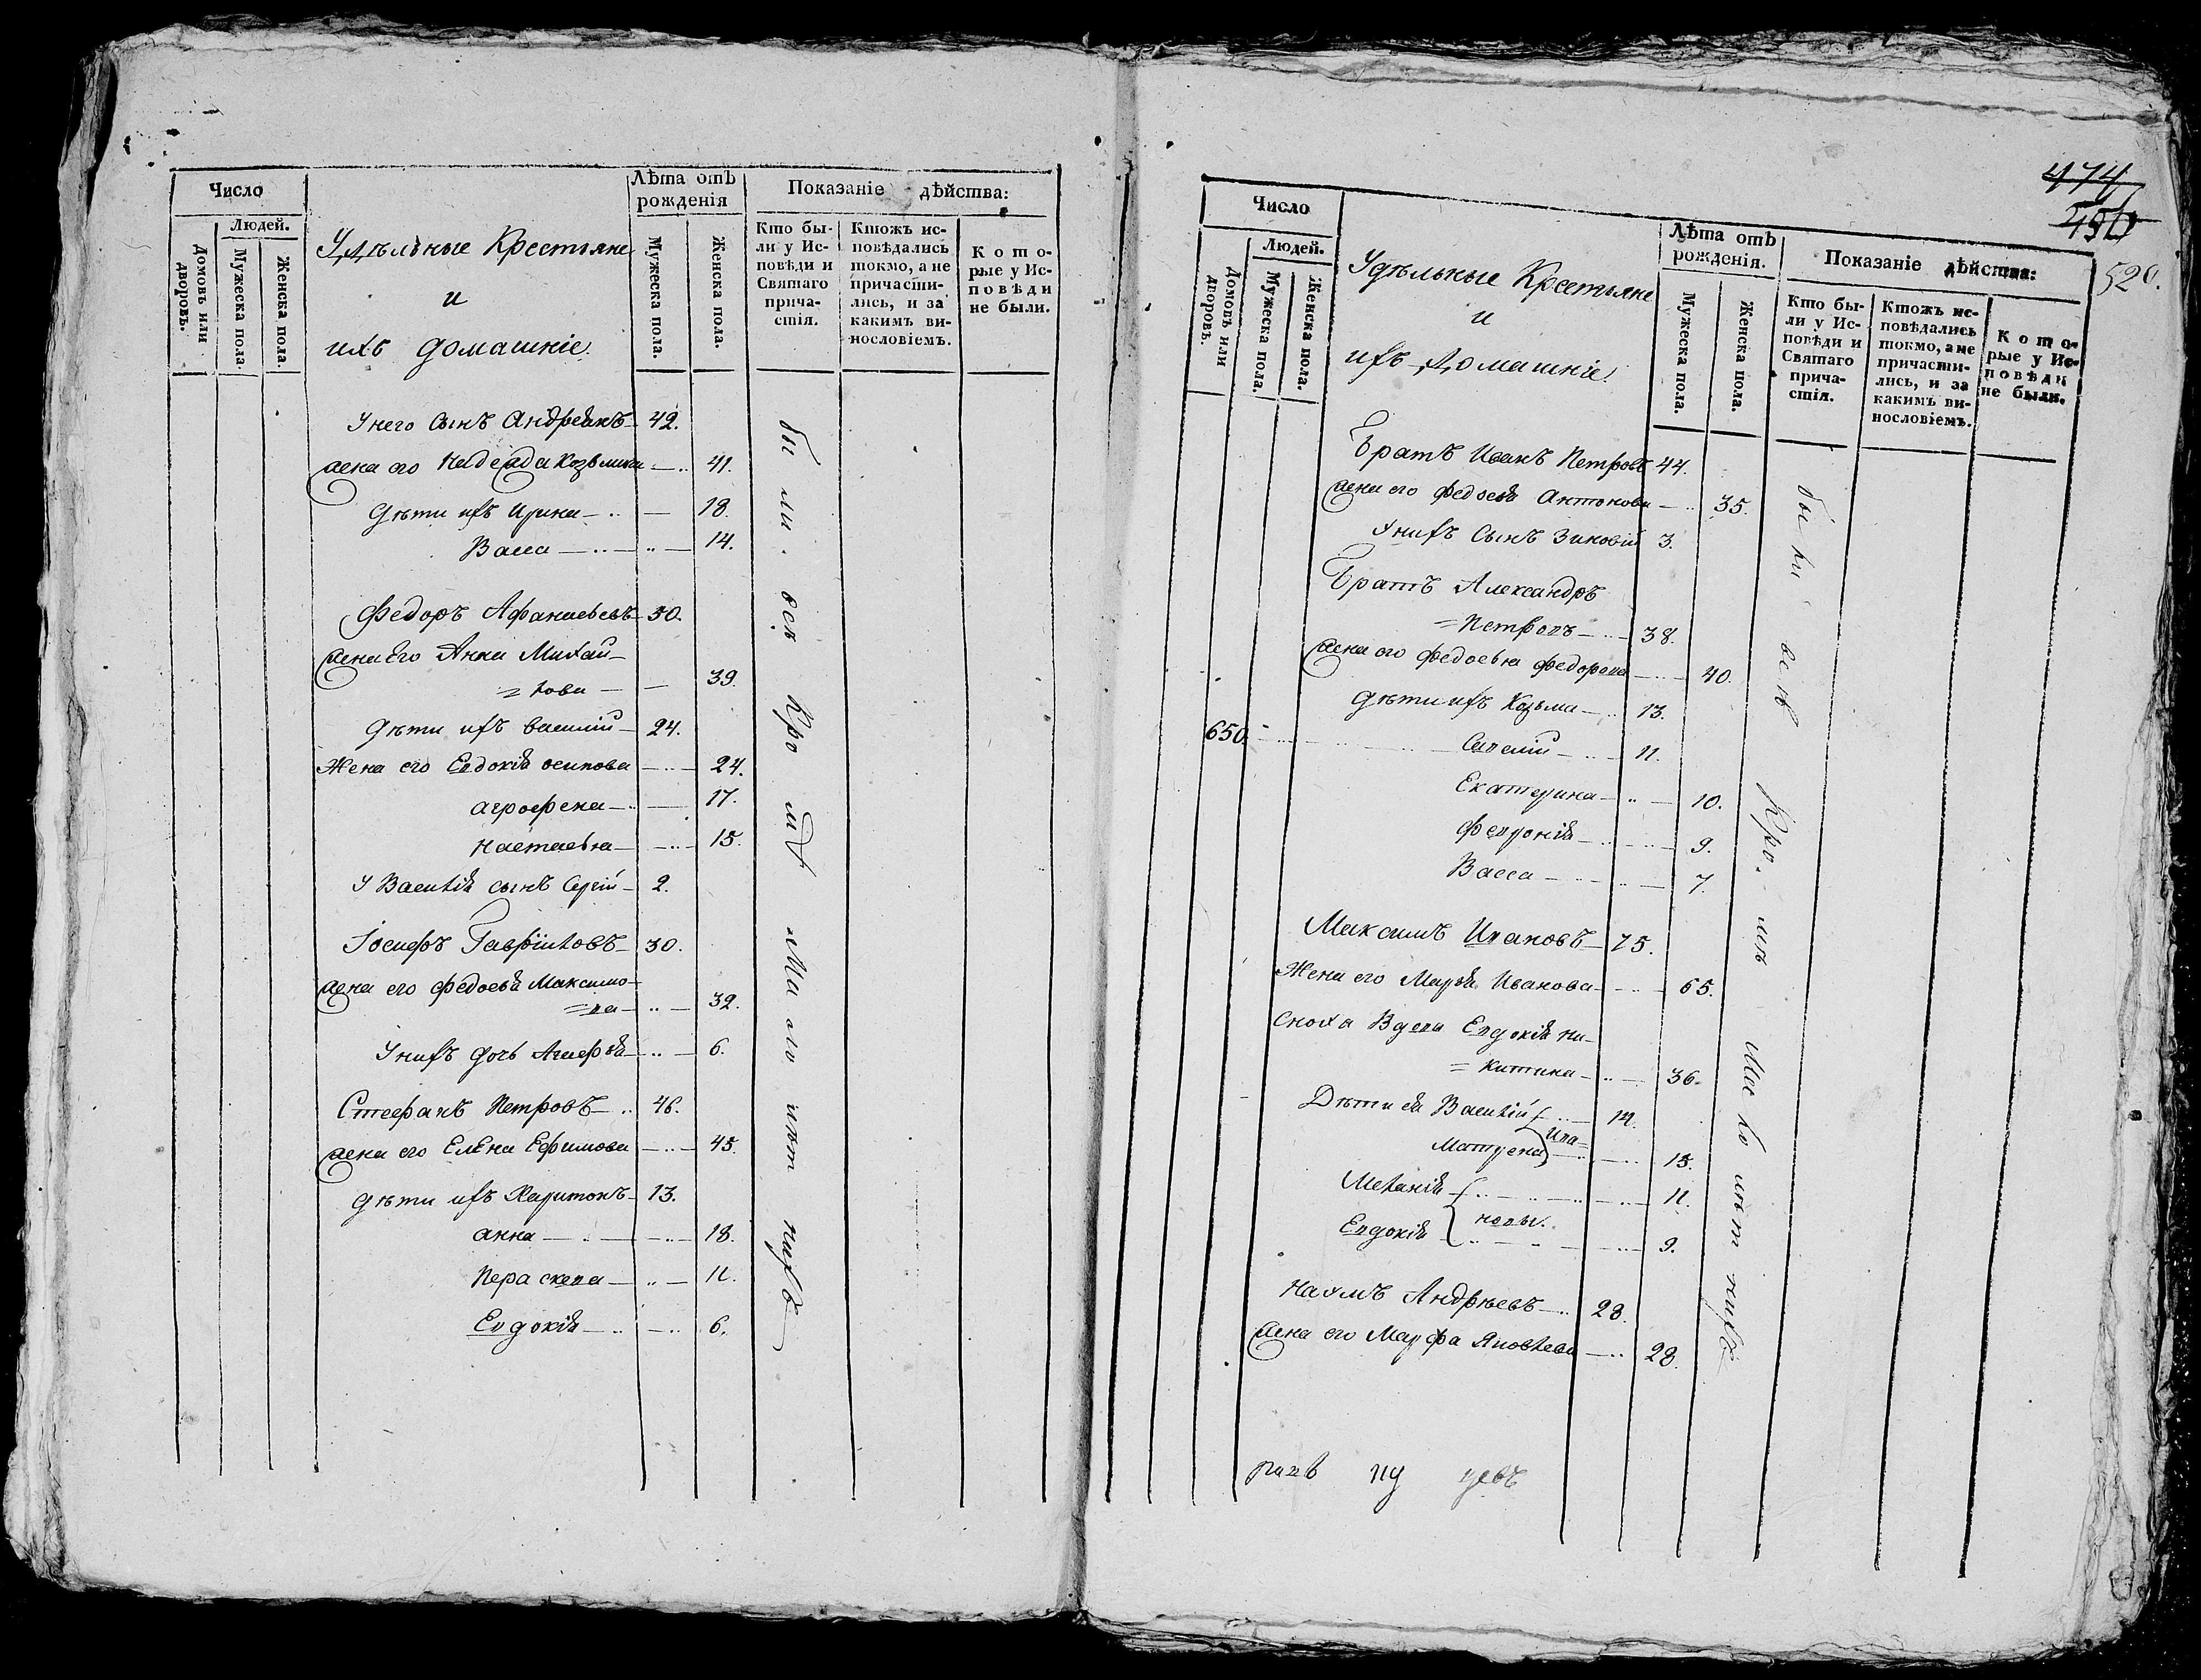 Число
Людей.
Домовъ или дворовъ.
Мужеска пола.
Женска пола.
Удѣльные Крестьяне
и
ихъ домашніе.
Лѣта отъ рожденія
Мужеска пола.
Женска пола.
Показаніе дѣйства:
Кто бы-
ли у Ис-
повѣди и
Святаго
прича-
стія.
Ктожъ ис-
повѣдались
токмо, а не
причасти-
лись, и за
какимъ ви-
нословіемъ.
Кото-
рые у Ис-
повѣди
не были.
У него Сынъ Андреянъ 42.
Жена его Надежда Козьмина 41.
Дѣти ихъ Ирина 18.
Васса 14.
Федоръ Афанасьевъ 50.
Жена Его Анна Михай-
=лова 39.
Дѣти ихъ Василій 24.
Жена его Евдокія осипова 24.
агрофена 17.
Настасья 15.
У Василія сынъ Сергій 2.
Іосифъ Гавріиловъ 30.
Жена его Федосья Максимо-
=ва 32.
У нихъ дочь Агафья 6.
Стефанъ Петровъ 46.
Жена его Елена Ефимова 45.
Дѣти ихъ Харитонъ 13.
анна 18.
Пераскева 11.
Евдокія 6.
были всѣ
474
456
520.
Число
Людей.
Домовъ или дворовъ.
Мужеска пола.
Женска пола.
Удѣльные Крестьяне
и
ихъ Домашніе.
Лѣта отъ рожденія.
Мужеска пола.
Женска пола.
Показаніе дѣйства:
Кто бы-
ли у Ис-
повѣди и
Святаго
прича-
стія.
Ктожъ ис-
повѣдались
токмо, а не
причасти-
лись, и за
какимъ ви-
нословіемъ.
Кото-
рые у Ис-
повѣди
не были.
Братъ Иванъ Петровъ 44.
Жена его Федосья Антонова 35.
У нихъ Сынъ Зиновій 3.
Братъ Александръ
=Петровъ 38.
Жена его Федосья Федорова 40.
Дѣти ихъ Козьма 13.
650. Савелій 11.
Екатерина 10.
Февронія 9.
Васса 7.
Максимъ Ивановъ 75.
Жена его Марья Иванова 65.
Сноха Вдова Евдокія Ни-
=китина 36.
Дѣти ея Василій 14.
Матрена Ива= 15.
Меланія 11.
Евдокія новы. 9.
Наумъ Андрѣевъ 28.
Жена его Марфа Яковлева 28.
были всѣ